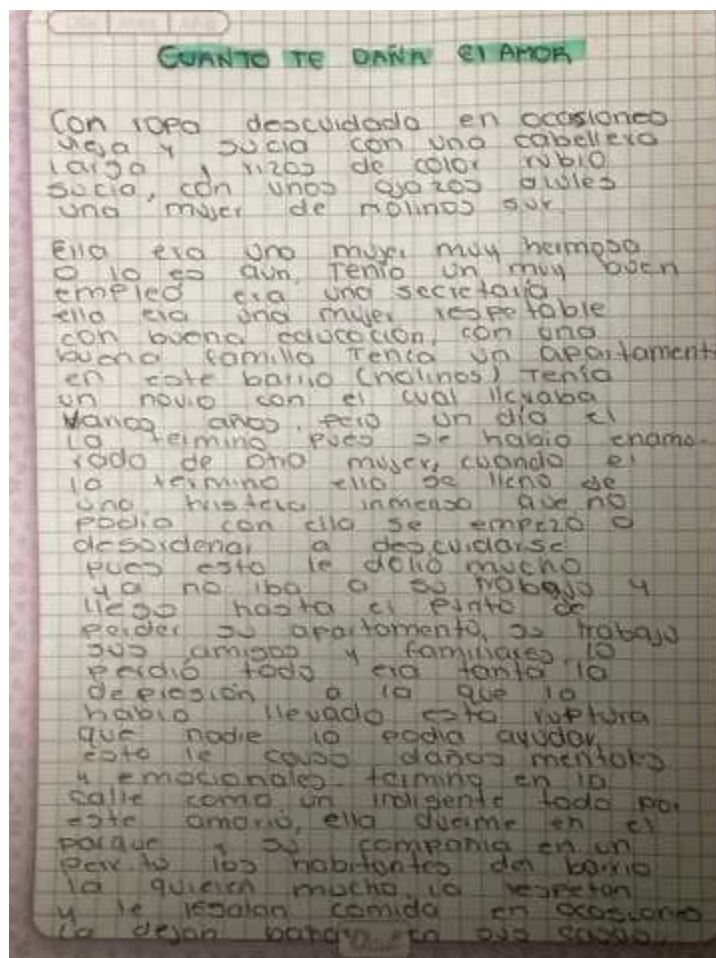 CUANTO TE DAÑA El AMOR
Con ropa descuidada en ocasiones
vieja y sucia con una cabellera
larga y rizos de color rubio
sucio, con unos ojazos azules
una mujer de molinos sur.
Ella era una mujer muy hermosa
o lo es aun. Tenia un muy buen
empleo era una secretaria
ella era una mujer respetable
con buena educación, con una
buena familia Tenia un apartament
en este barrio (molinos) Tenía
un novio con el cual llevaba
varios años, pero un día el
la termino pues se habia enamo-
rado de otra mujer, cuando el
la termino ella se lleno de
una tristeza inmensa que no
podia con ella se empezo a
desordenar a descuidarse
pues esto le dolio mucho
ya no iba a su trabajo y
llego hasta el punto de
perder su apartamento, su trabajo
sus amigos y familiares, lo
perdió todo era tanta la
depresión a la que la
habia llevado esta ruptura
que nadie la podia ayudar,
esto le causo daños mentales
y emocionales termino en la
calle como un indigente todo por
este amorio, ella duerme en el
parque y su compañia en un
perrito los habitantes del barrio
la quieren mucho, la respetan
y le regalan comida en ocasiones
la dejan en sus casas.